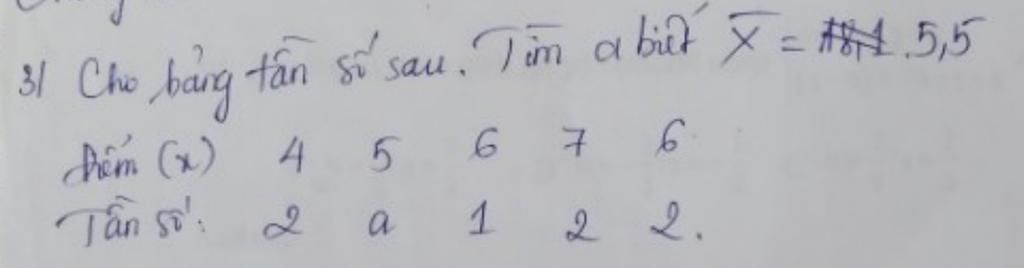 3) Cho bảng tần số sau. Tìm a biết X̄ = 5,5
Điểm (x) 4 5 6 7 6
Tần số: 2 a 1 2 2.